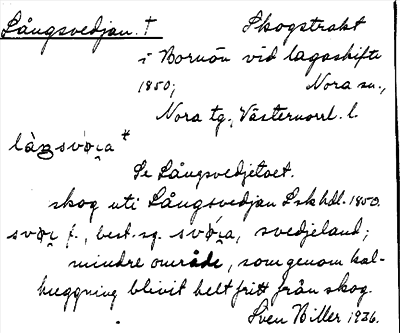 Långsvedjan. †
Skogstrakt
i Bornön vid lagaskifte
1850; Nora sn.,
Nora tg., Västernorrl. l.
Se Långsvedjetoet.
skog uti Långsvedjan Lskhdl. 1850.
f., best. sg. svedjeland;
mindre område, som genom kal-
huggning blivit helt fritt från skog.
Sven Biller 1936.